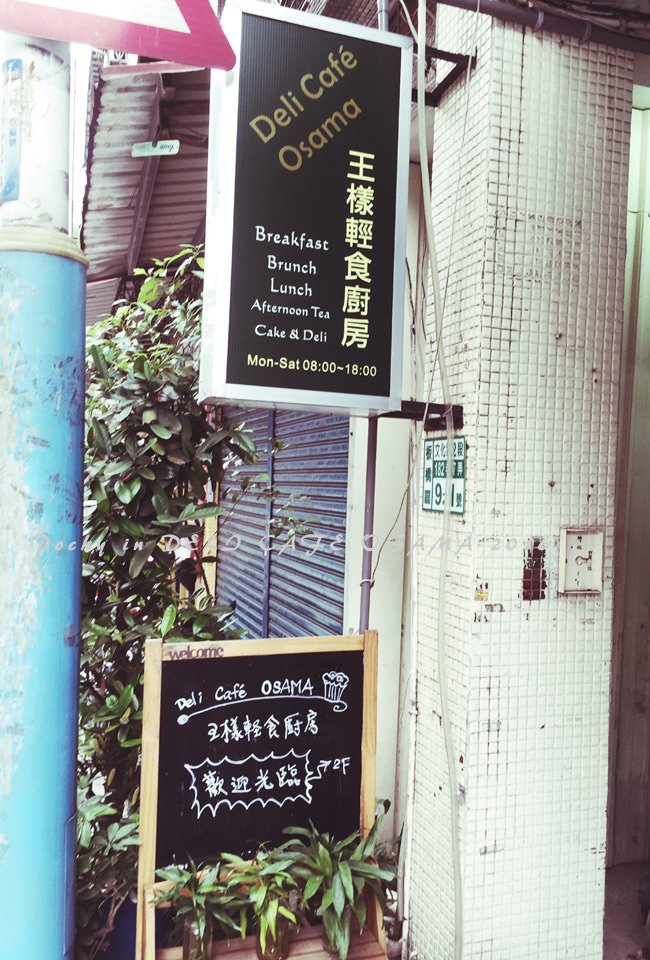 Deli Café
Osama
王樣輕食廚房
Breakfast
Brunch
Lunch
Afternoon Tea
Cake & Deli
Mon-Sat 08:00~18:00
板橋區
文化 2段
182
9 1號
welcome
Deli Café OSAMA
王樣輕食廚房
歡迎光臨
2F